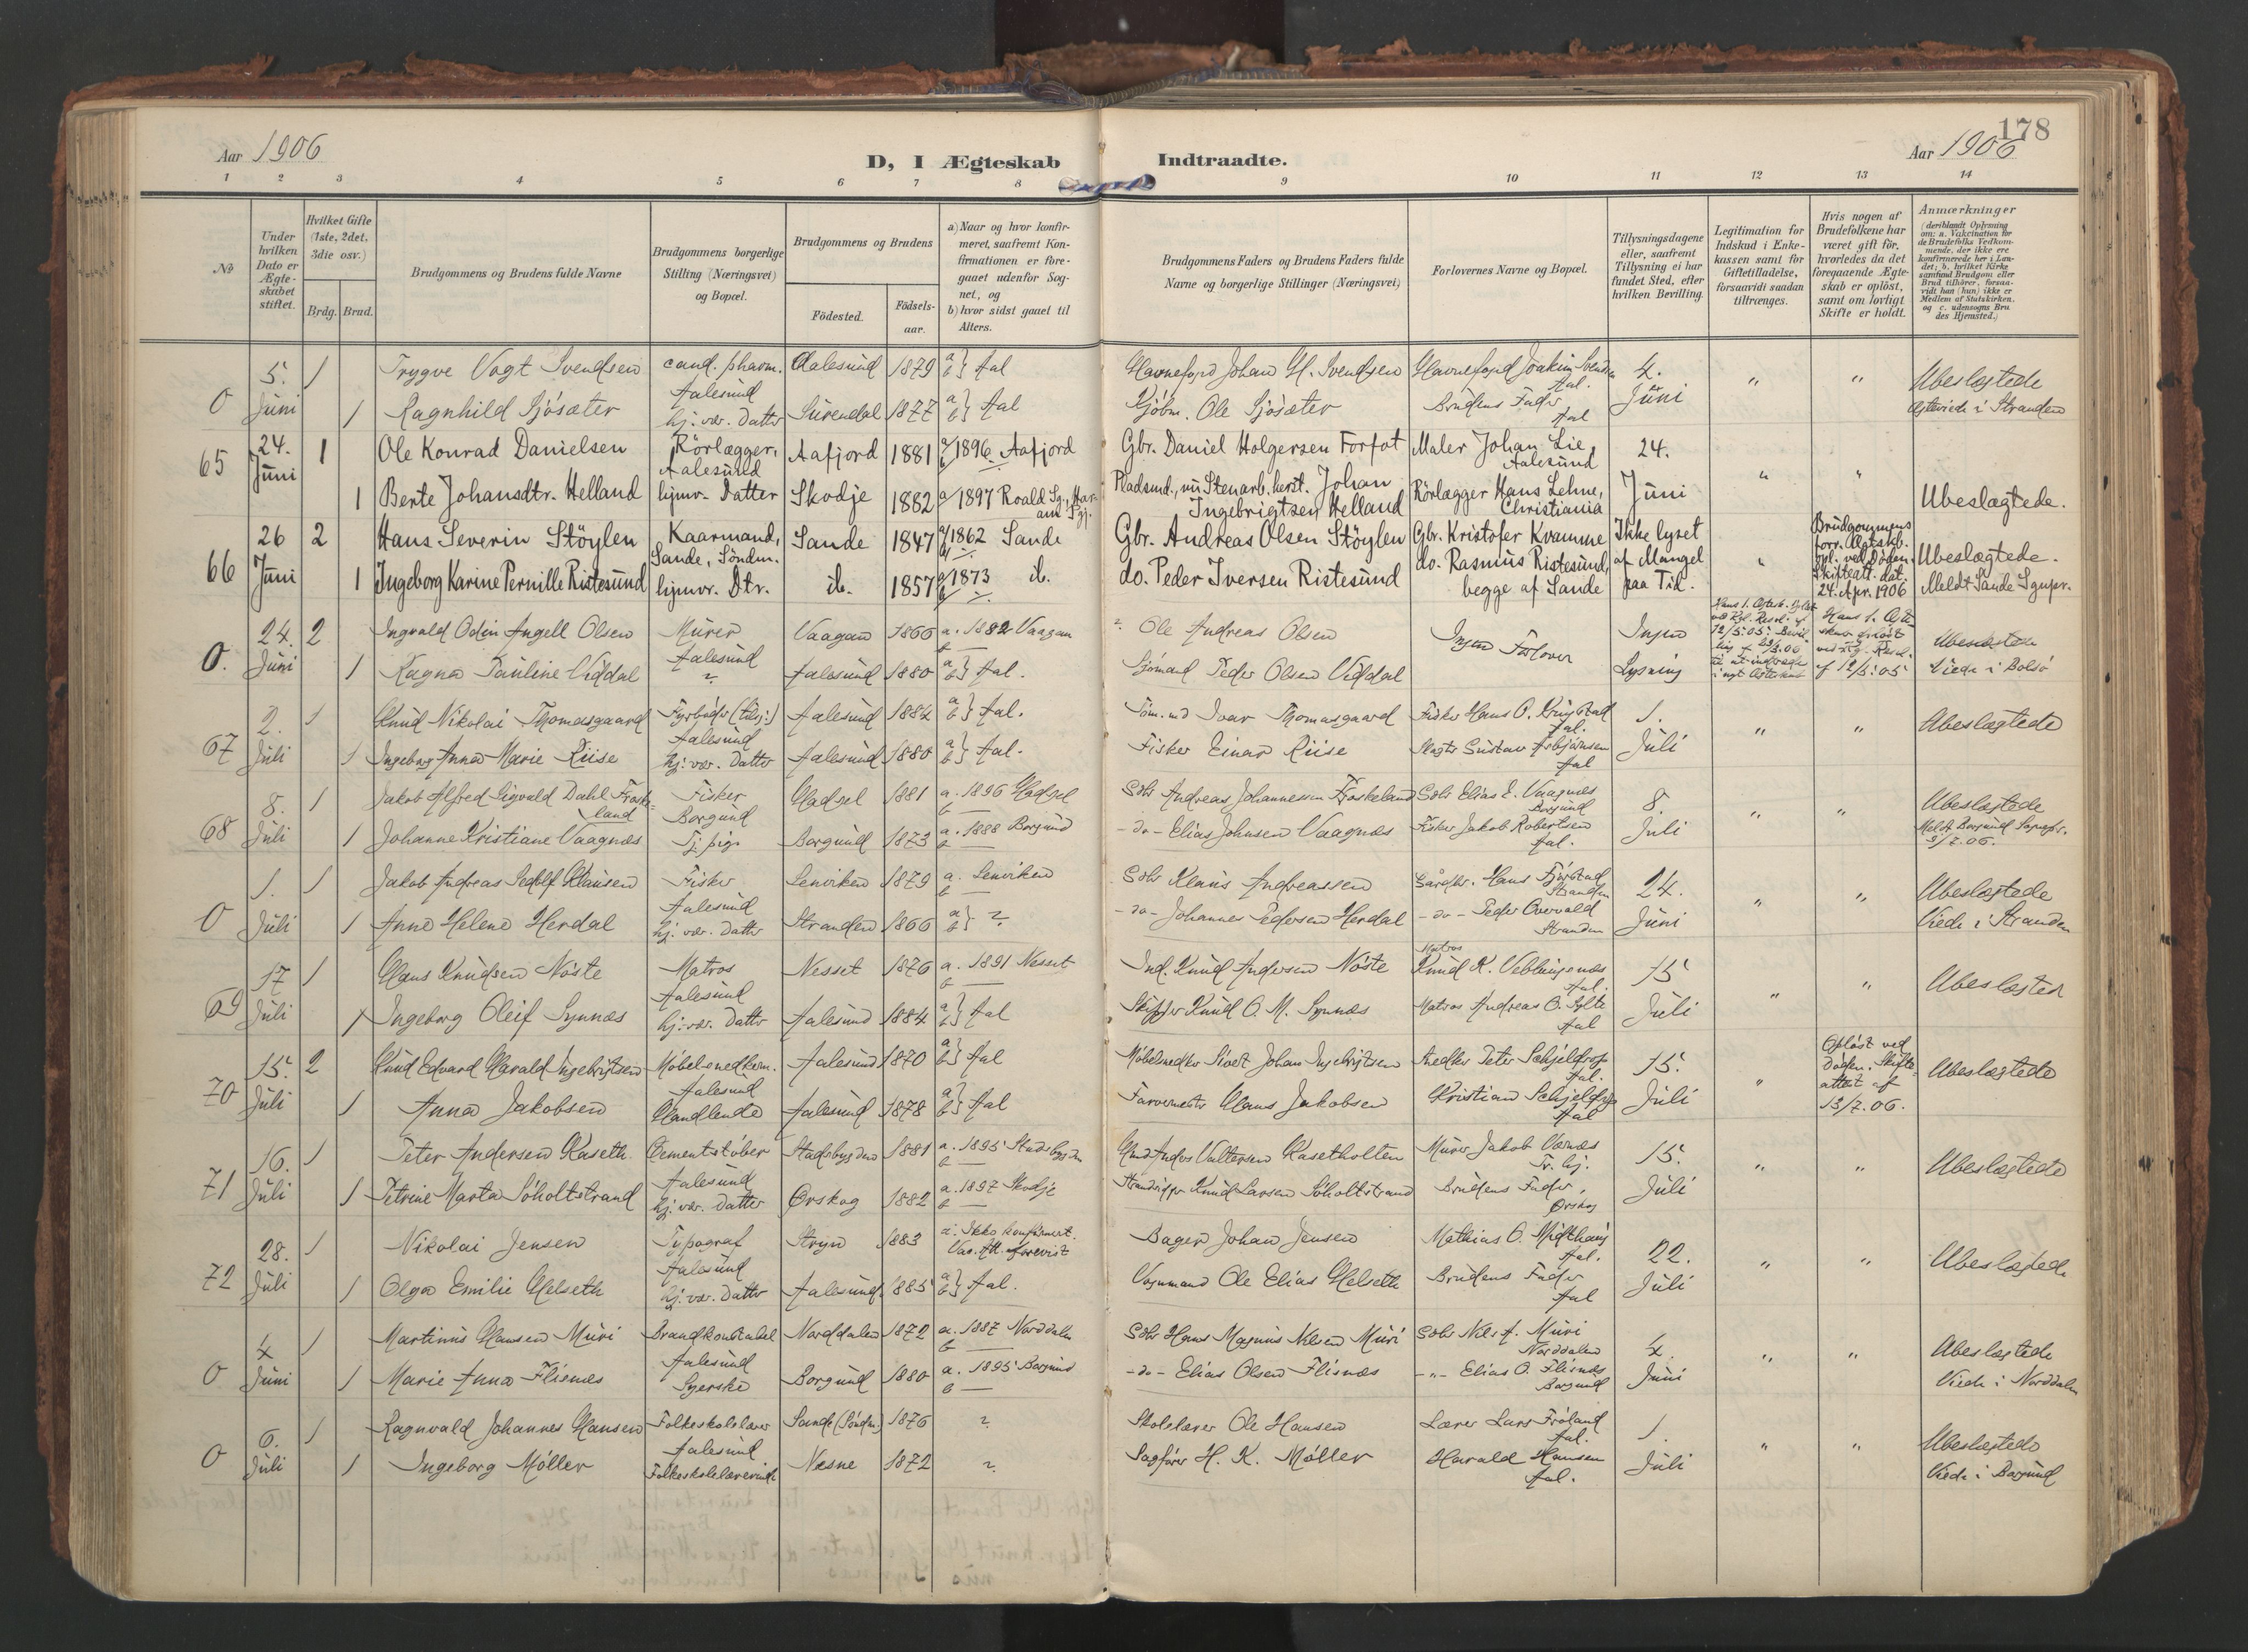 178
Aar 1906
D, I Ægteskab Indtraadte.
Aar 1906
1 2 3 4 5 6 7 8 9 10 11 12 13 14
No
Under hvilken Dato er Ægteskabet stiftet.
Hvilket Gifte (1ste, 2det, 3die osv.)
Brdg. Brud.
Brudgommens og Brudens fulde Navne
Brudgommens borgerlige Stilling (Næringsvei) og Bopæl.
Brudgommens og Brudens
Födested.
Födsels-aar.
a) Naar og hvor konfirmeret, saafremt Konfirmationen er foregaaet udenfor Sognet, og
b) hvor sidst gaaet til Alters.
Brudgommens Faders og Brudens Faders fulde Navne og borgerlige Stillinger (Næringsvei)
Forlovernes Navne og Bopæl.
Tillysningsdagene eller, saafremt Tillysning ei har fundet Sted, efter hvilken Bevilling.
Legitimation for Indskud i Enkekassen samt for Giftetilladelse, forsaavidt saadan tiltrænges.
Hvis nogen af Brudefolkene har været gift för, hvorledes da det foregaaende Ægteskab er oplöst, samt om lovligt Skifte er holdt.
Anmærkninger
(deriblandt Oplysning om: a. Vakcination for de Brudefolks Vedkommende, der ikke ere konfirmerede her i Landet; b. hvilket Kirkesamfund Brudgom eller Brud tilhörer, forsaavidt han (hun) ikke er Medlem af Statskirken, og c. udensogns Brudes Hjemsted.)
0 5. Juni 1 Trygve Vogt Svendsen cand. pharm. Aalesund Aalesund 1879 a b} Aal Johan H. Svendsen Joakim Svendsen Aal. 4. Juni " " Ubeslægtede
1 Ragnhild Sjösæter hj. vær. Datter Surendal 1877 a b} Aal Kjöbm. Ole Sjösæter Brudens Fader Aal Ægteviede i Stranden
65 24. Juni 1 Ole Konrad Danielsen Rörlægger, Aalesund Aafjord 1881 a/1896 Aafjord Gbr. Daniel Holgersen Forfot Maler Johan Lie, Aalesund 24. Juni " "
1 Berte Johansdtr. Helland hjmv. Datter Skodje 1882 a/1897 Roald Sg., Haram Pgj. Pladsmd., nu Stenarb. herst. Johan Ingebrigtsen Helland Rörlægger Hans Lehne, Christiania Ubeslægtede.
66 26 Juni 2 Hans Severin Stöylen Kaarmand, Sande, Söndm. Sande 1847 a/1862 Sande Gbr. Andreas Olsen Stöylen Gbr. Kristofer Kvamme Ikke lyset af Mangel paa Tid. " Brudgommens forr. Ægtskb. opl. ved Döden. Skifteatt. dat. 24. Apr. 1906 Ubeslægtede.
1 Ingeborg Karine Pernille Ristesund hjmv. Dtr. ib. 1857 a/1873 ib. do. Peder Iversen Ristesund do. Rasmus Ristesund, begge af Sande Meldt Sande Sgnpr.
0. 24. Juni 2 Ingvald Odin Angell Olsen Murer Aalesund Vaagan 1866 a. 1882 Vaagan b — Ole Andreas Olsen Ingen Forlover Ingen Lysning Hans 1. Ægtesk. 12/5.05. Hans 1. 12/5.05 Ubeslægtede
1 Ragna Pauline Viddal Aalesund 1880 a b} Aal. Sjömand Peder Olsen Viddal Viede i Bolsö
67 2. Juli 1 Knud Nikolai Thomasgaard Fyrböder Aalesund Aalesund 1884 a b} Aal. Töm.md Ivar Thomasgaard Fisker Hans O. Aal. 1. Juli " " Ubeslægtede
1 Ingeborg Anna Marie Riise hj. vær. Datter Aalesund 1880 a b} Aal. Fisker Einar Riise Gustav Asbjörnsen Aal
68 8. Juli 1 Jakob Alfred Sigvald Dahl Froskeland Fisker Borgund Hadsel 1881 a. 1896 Hadsel b — Andreas Johannessen Froskeland Elias E. Vaagnæs Borgund 8. Juli " " Ubeslægtede
1 Johanne Kristiane Vaagnæs Tj. pige Borgund 1873 a. 1888 Borgund b — -do- Elias Johnsen Vaagnæs Fisker Jakob Robertsen Aal. Meldt Borgund Sognepr. 9/7.06.
0 1. Juli 1 Jakob Andreas Klausen Fisker Aalesund Lenviken 1879 a. Lenviken b — Klaus Andreassen Gårdbr. Hans Fjörstad Stranden 24. Juni " " Ubeslægtede
1 Anne Helene Herdal hj. vær. Datter Stranden 1866 a b} ? -do- Johannes Pedersen Herdal -do- Peder Overvald Stranden Viede i Stranden
69 17 Juli 1 Hans Knudsen Nöste Matros Aalesund Nesset 1876 a. 1891 Nesset b — Ind. Knud Andersen Nöste Matros Knud K. Veblungsnæs Aal. 15 Juli " " Ubeslægted
1 Ingeborg Oleif Synnæs hj. vær. Datter Aalesund 1884 a b} Aal Skipper Knud O. M. Synnæs Matros Andreas O. Aal
70 15. Juli 2 Knud Edvard Harald Ingebrigtsen Möbelsnedkerm. Aalesund Aalesund 1870 a b} Aal Möbelsnedker Sivert Johan Ingebrigtsen Snedker Peter Schjeldrop Aal. 15. Juli " Oplöst ved Döden. Skifteattest af 13/7.06. Ubeslægtede
1 Anna Jakobsen Handlende Aalesund 1878 a b} Aal Farvermester Hans Jakobsen Kristian Schjeldrop Aal
71 16. Juli 1 Peter Andersen Kaseth Cementstöber Aalesund Stadsbygden 1881 a. 1895 Stadsbygden b — Anders Valtersen Kasetholten Murer Jakob Værnæs 15. Juli " " Ubeslægtede
1 Petrine Marta Söholtstrand hj. vær. Datter Ørskog 1882 a. 1897 Skodje b — Strandsidder Knud Larsen Söholtstrand Brudens Fader, Ørskog
72 28. Juli 1 Nikolai Jensen Typograf Aalesund Stryn 1883 a. Ikke konfirmert. Vac. Att. forevist Bager Johan Jensen Mathias O. Midthaug Aal. 22. Juli " " Ubeslægtede
1 Olga Emilie Helseth hj. vær. Datter Aalesund 1885 a b} Aal. Vognmand Ole Elias Helseth Brudens Fader Aal
0 4 Juni 1 Martinus Hansen Muri Brandkonstabel Aalesund Norddalen 1872 a. 1887 Norddalen b — Hans Magnus Nilsen Muri Nils A. Muri Norddalen 4. Juni " " Ubeslægtede
1 Marie Anna Flisnæs Syerske Borgund 1880 a. 1895 Borgund b — -do- Elias Olsen Flisnæs -"- Elias O. Flisnæs Borgund Viede i Norddalen
0 6. Juli 1 Ragnvald Johannes Hansen Folkeskolelærer Aalesund Sande (Söndm.) 1876 ? Skolelærer Ole Hansen Lærer Lars Fröland Aal. 1. Juli " " Ubeslægtede
1 Ingeborg Möller Folkeskolelærerinde Næsne 1872 ? Sagförer H. K. Möller Harald Hansen Aal. Viede i Borgund